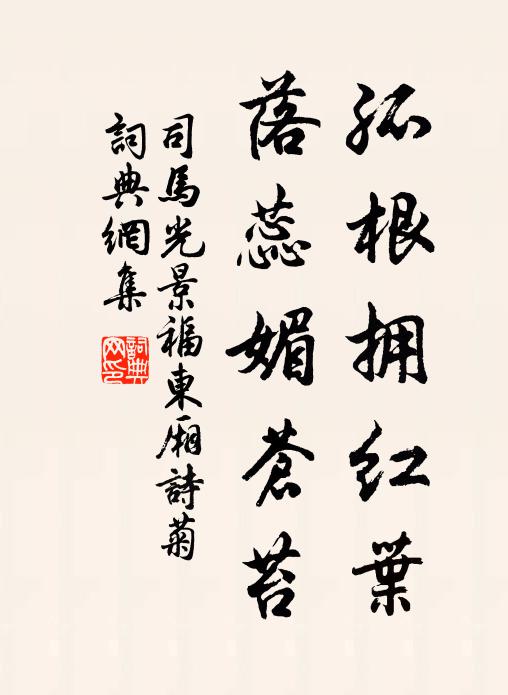 孤根拥红葉
落蕊媚蒼苔
司馬光景福東厢詩菊
詞典網集
詞典网印